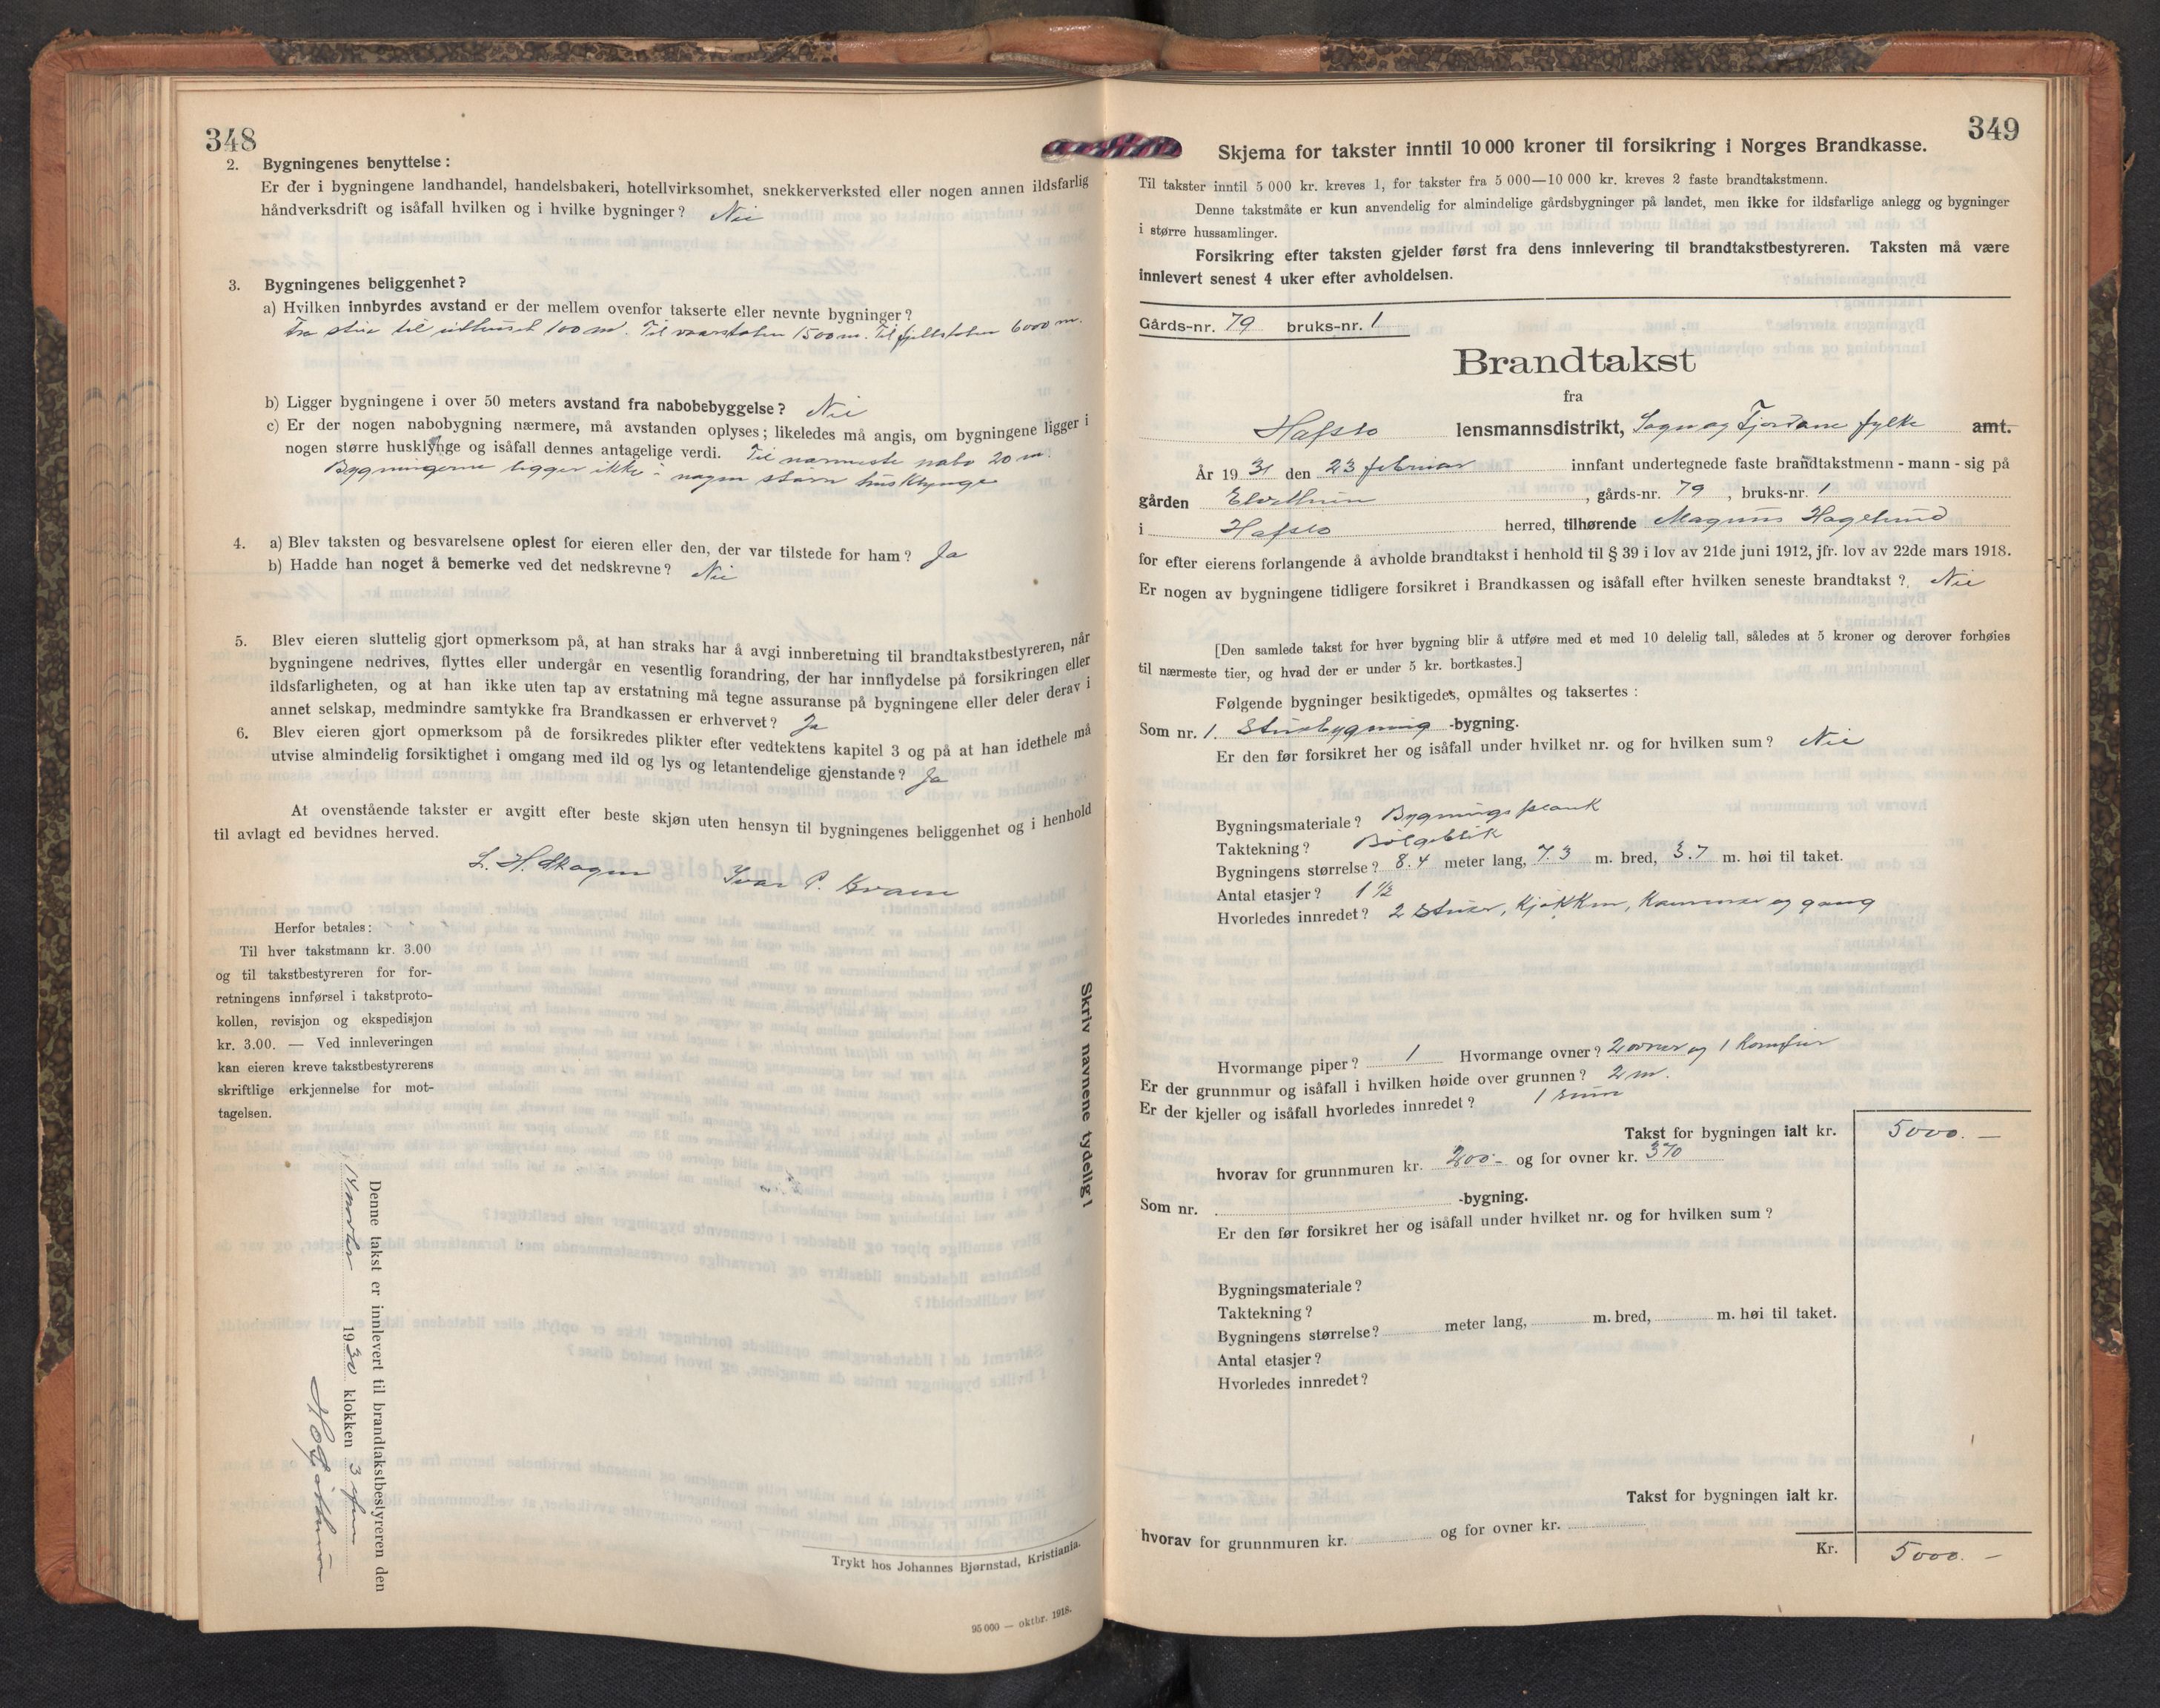 348
2. Bygningenes benyttelse:
Er der i bygningene landhandel, handelsbakeri, hotellvirksomhet, snekkerverksted eller nogen annen ildsfarlig
håndverksdrift og isåfall hvilken og i hvilke bygninger? Nei
3. Bygningenes beliggenhet?
a) Hvilken innbyrdes avstand er der mellem ovenfor takserte eller nevnte bygninger?
Fra stue til uthuset 100 m. Til vaarstølen 1500 m. Til fjellstølen 6000 m.
b) Ligger bygningene i over 50 meters avstand fra nabobebyggelse? Nei
c) Er der nogen nabobygning nærmere, må avstanden oplyses; likeledes må angis, om bygningene ligger i
nogen større husklynge og isåfall dennes antagelige verdi. Til nærmeste nabo 20 m.
Bygningerne ligger ikke i nogen større husklynge
4. a) Blev taksten og besvarelsene oplest for eieren eller den, der var tilstede for ham? Ja
b) Hadde han noget å bemerke ved det nedskrevne? Nei
5. Blev eieren sluttelig gjort opmerksom på, at han straks har å avgi innberetning til brandtakstbestyreren, når
bygningene nedrives, flyttes eller undergår en vesentlig forandring, der har innflydelse på forsikringen eller
ildsfarligheten, og at han ikke uten tap av erstatning må tegne assuranse på bygningene eller deler derav i
annet selskap, medmindre samtykke fra Brandkassen er erhvervet? Ja
6. Blev eieren gjort opmerksom på de forsikredes plikter efter vedtektens kapitel 3 og på at han idethele må
utvise almindelig forsiktighet i omgang med ild og lys og letantendelige gjenstande? Ja
At ovenstående takster er avgitt efter beste skjøn uten hensyn til bygningenes beliggenhet og i henhold
til avlagt ed bevidnes herved.
L. H. Skagen Ivar P. Kvam
Herfor betales:
Til hver takstmann kr. 3.00
og til takstbestyreren for for-
retningens innførsel i takstproto-
kollen, revisjon og ekspedisjon
kr. 3.00. — Ved innleveringen
kan eieren kreve takstbestyrerens
skriftlige erkjennelse for mot-
tagelsen.
Skriv navnene tydelig!
Denne takst er innlevert til brandtakstbestyreren den
14 1930 klokken 3
Trykt hos Johannes Bjørnstad, Kristiania.
95 000 — oktbr. 1918.
349
Skjema for takster inntil 10 000 kroner til forsikring i Norges Brandkasse.
Til takster inntil 5 000 kr. kreves 1, for takster fra 5 000—10 000 kr. kreves 2 faste brandtakstmenn.
Denne takstmåte er kun anvendelig for almindelige gårdsbygninger på landet, men ikke for ildsfarlige anlegg og bygninger
i større hussamlinger.
Forsikring efter taksten gjelder først fra dens innlevering til brandtakstbestyreren. Taksten må være
innlevert senest 4 uker efter avholdelsen.
Gårds-nr. 79 bruks-nr. 1
Brandtakst
fra
Hafslo lensmannsdistrikt, Sogn og Fjordane fylke amt.
År 1931 den 23 februar innfant undertegnede faste brandtakstmenn - mann - sig på
gården , gårds-nr. 79, bruks-nr. 1
i Hafslo herred, tilhørende Magnus Hagelund
for efter eierens forlangende å avholde brandtakst i henhold til § 39 i lov av 21de juni 1912, jfr. lov av 22de mars 1918.
Er nogen av bygningene tidligere forsikret i Brandkassen og isåfall efter hvilken seneste brandtakst? Nei
[Den samlede takst for hver bygning blir å utføre med et med 10 delelig tall, således at 5 kroner og derover forhøies
til nærmeste tier, og hvad der er under 5 kr. bortkastes.]
Følgende bygninger besiktigedes, opmåltes og taksertes:
Som nr. 1. Stuebygning -bygning.
Er den før forsikret her og isåfall under hvilket nr. og for hvilken sum? Nei
Bygningsmateriale? Bygningsplank
Taktekning? Bölgeblik
Bygningens størrelse? 8.4 meter lang, 7.3 m. bred, 3.7 m. høi til taket.
Antal etasjer? 1 ½
Hvorledes innredet? 2 Stuer, Kjøkken, Kammer og gang
Hvormange piper? 1 Hvormange ovner? 2 ovner og 1 Komfur
Er der grunnmur og isåfall i hvilken høide over grunnen? 2 m.
Er der kjeller og isåfall hvorledes innredet? 1 rum
Takst for bygningen ialt kr. 5000. —
hvorav for grunnmuren kr. 200.- og for ovner kr. 370
Som nr. -bygning.
Er den før forsikret her og isåfall under hvilket nr. og for hvilken sum?
Bygningsmateriale?
Taktekning?
Bygningens størrelse? meter lang, m. bred, m. høi til taket.
Antal etasjer?
Hvorledes innredet?
Takst for bygningen ialt kr.
hvorav for grunnmuren kr. og for ovner kr.
Kr. 5000. —